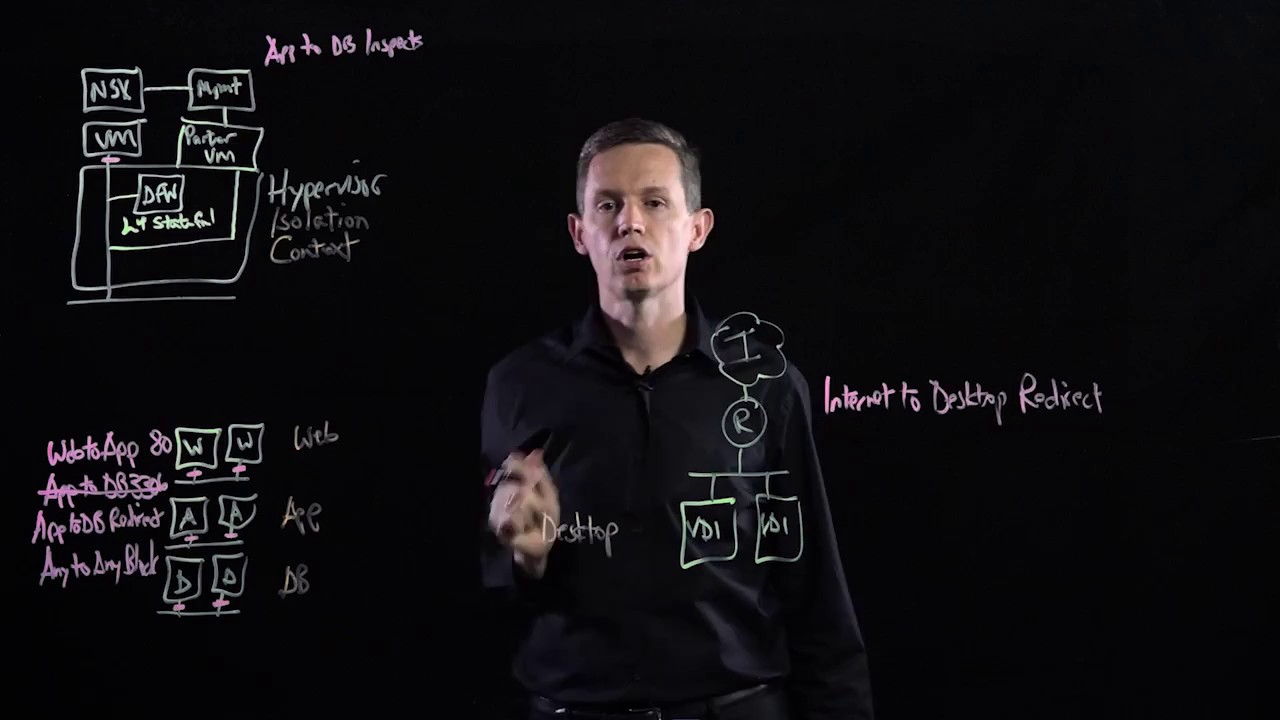 App to DB Inspects
NSX
Mgmt
VM
Partner
VM
DFW
L4 Stateful
Hypervisor
Isolation
Context
I
R
Internet to Desktop Redirect
Web to App 80
W
W
Web
App to DB 3306
App to DB Redirect
A
A
App
Any to Any Block
D
D
DB
Desktop
VDI
VDI